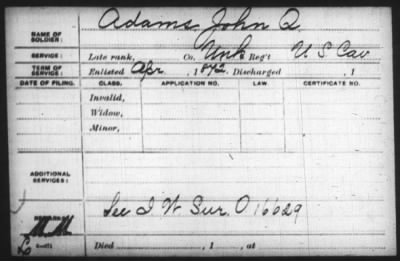 Adams, John Q.
NAME OF SOLDIER:
SERVICE: Late rank, Co. Unk Reg't U. S. Cav
TERM OF SERVICE: Enlisted Apr , 1872. Discharged , 1
DATE OF FILING. CLASS. APPLICATION NO. LAW. CERTIFICATE NO.
Invalid,
Widow,
Minor,
ADDITIONAL SERVICES:
See I W Sur. O 16629
REMARKS:
Died , 1 , at